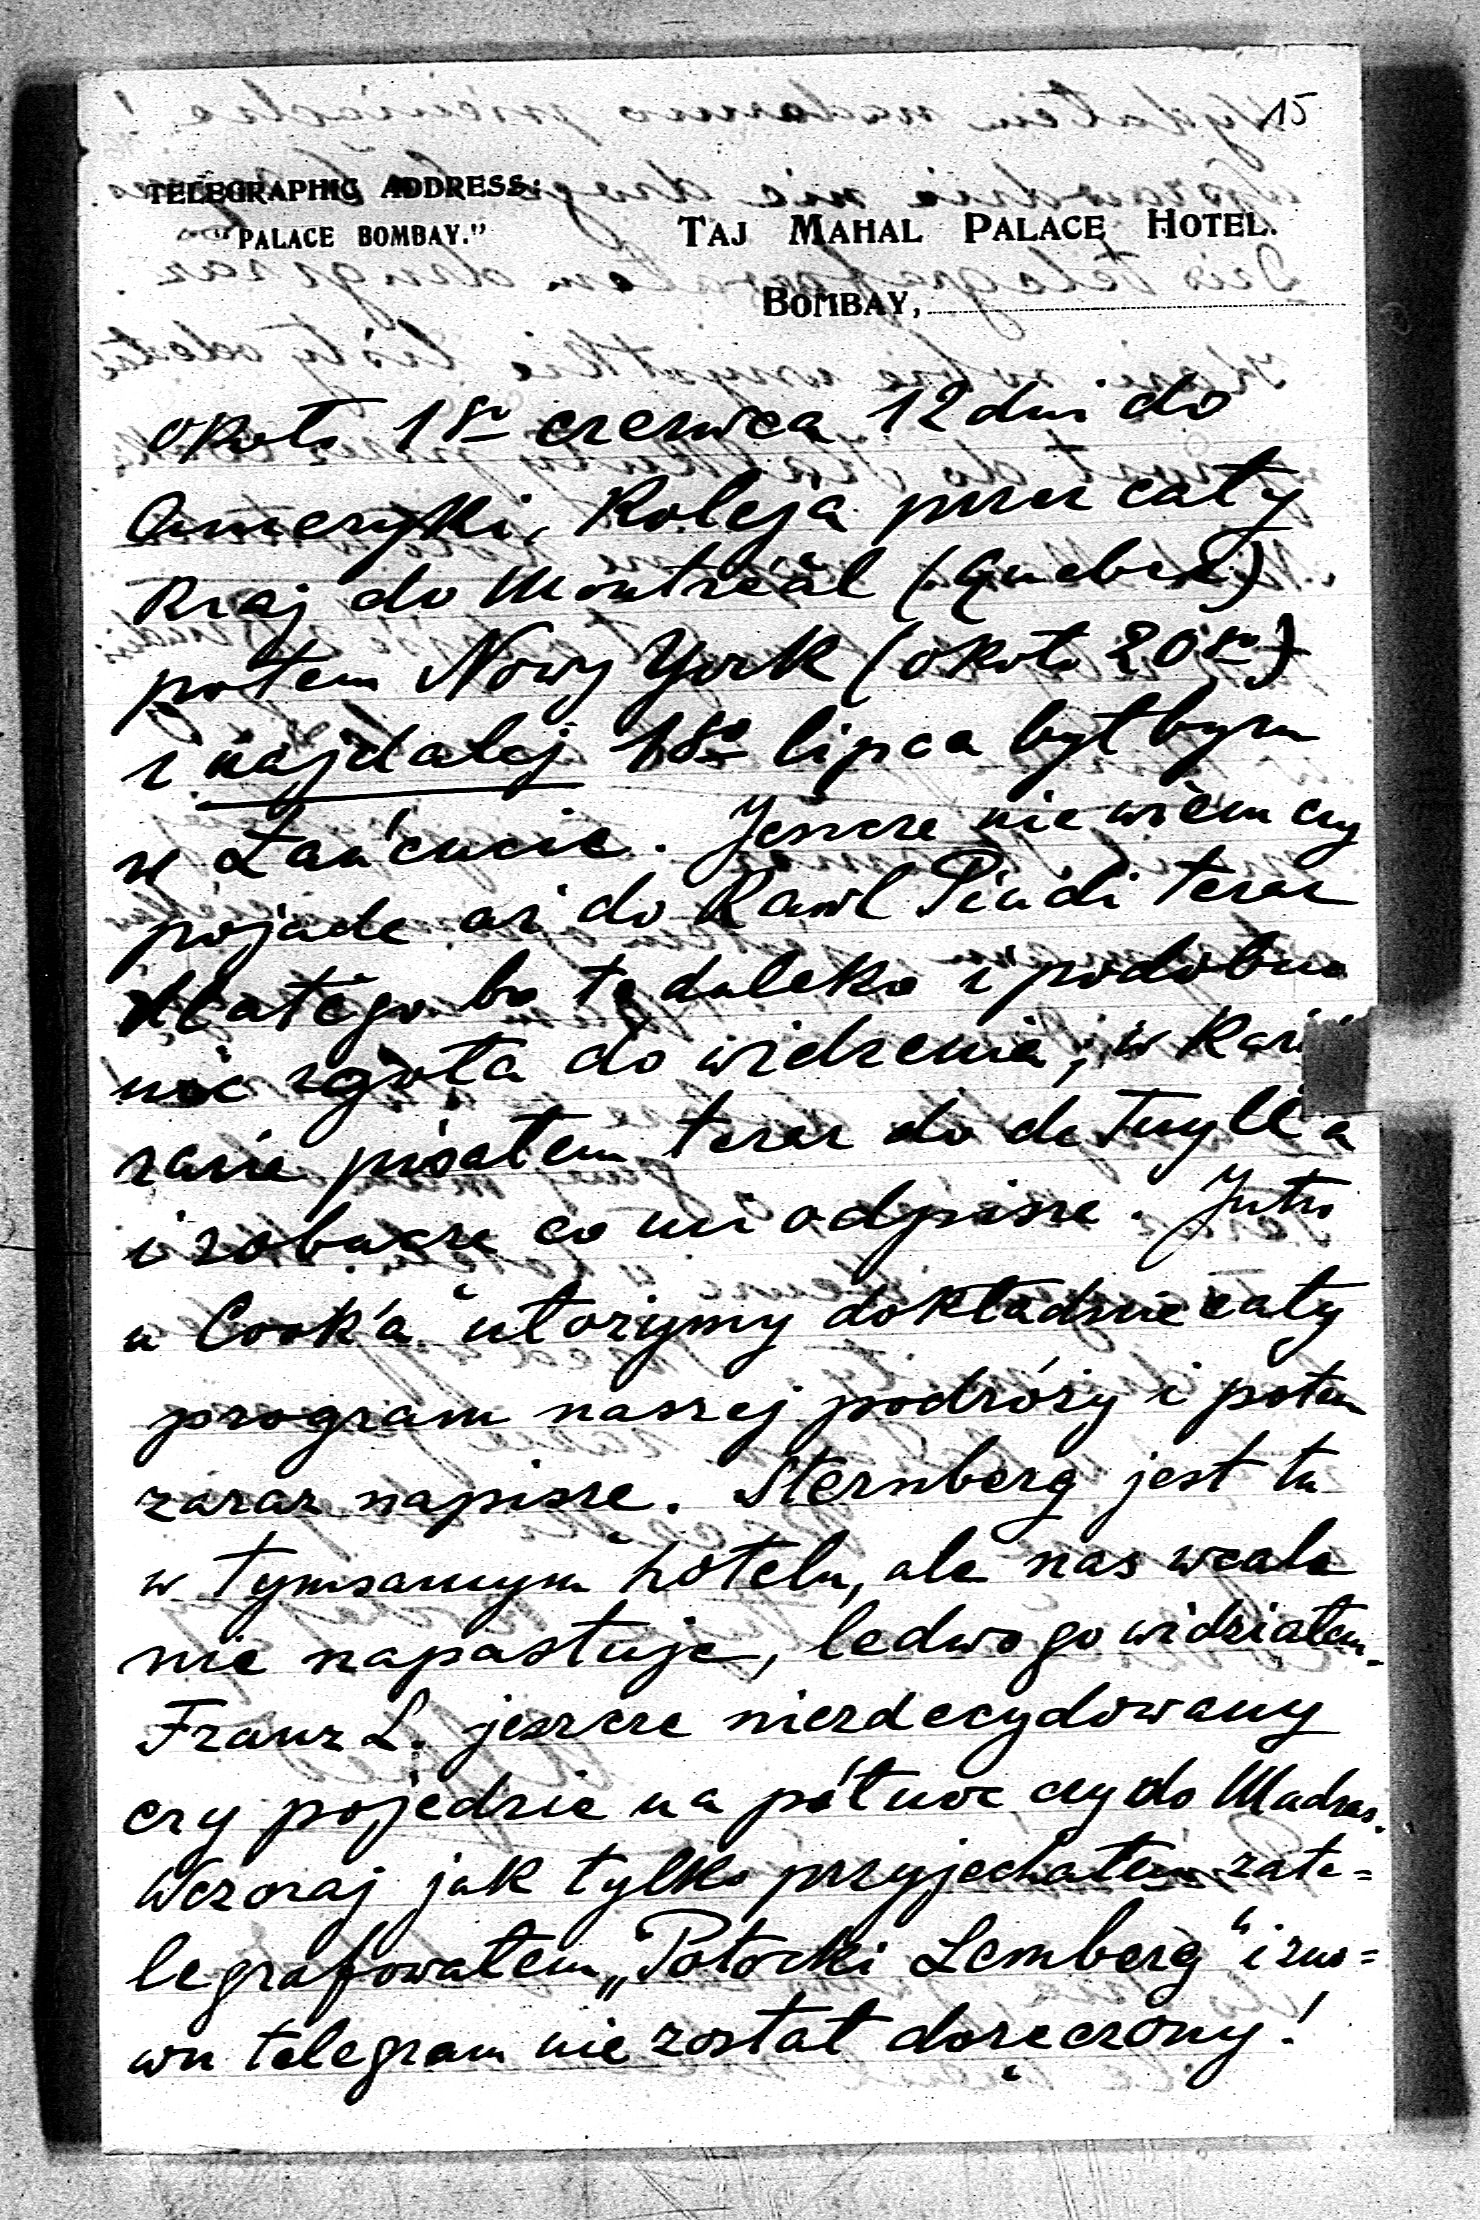 15
TELEGRAPHIC ADDRESS:
"PALACE BOMBAY."
TAJ MAHAL PALACE HOTEL.
BOMBAY,
około 1go czerwca 12 dni do
Ameryki, Koleją przez cały
Kraj do Montréal (Quebek)
potem Nowy York (około 20go)
i najdalej 18go lipca byłbym
w Łańcucie. Jeszcze nie wiem czy
pojadę aż do Rawl Pindi teraz
dlatego bo to daleko i podobno
nic zgoła do widzenia; w każ
razie pisałem teraz do de Tuyll'a
i zobaczę co mi odpisze. Jutro
u Cook'a ułożymy dokładnie cały
program naszej podróży i potem
zaraz napiszę. Sternberg jest tu
w tymsamym hotelu, ale nas wcale
nie napastuje, ledwo go widziałem.
Franz L. jeszcze niezdecydowany
czy pojedzie na północ czy do Madras.
Wczoraj jak tylko przyjechałem zate=
legrafowałem „Potocki Lemberg" i zno=
wu telegram nie został doręczony!